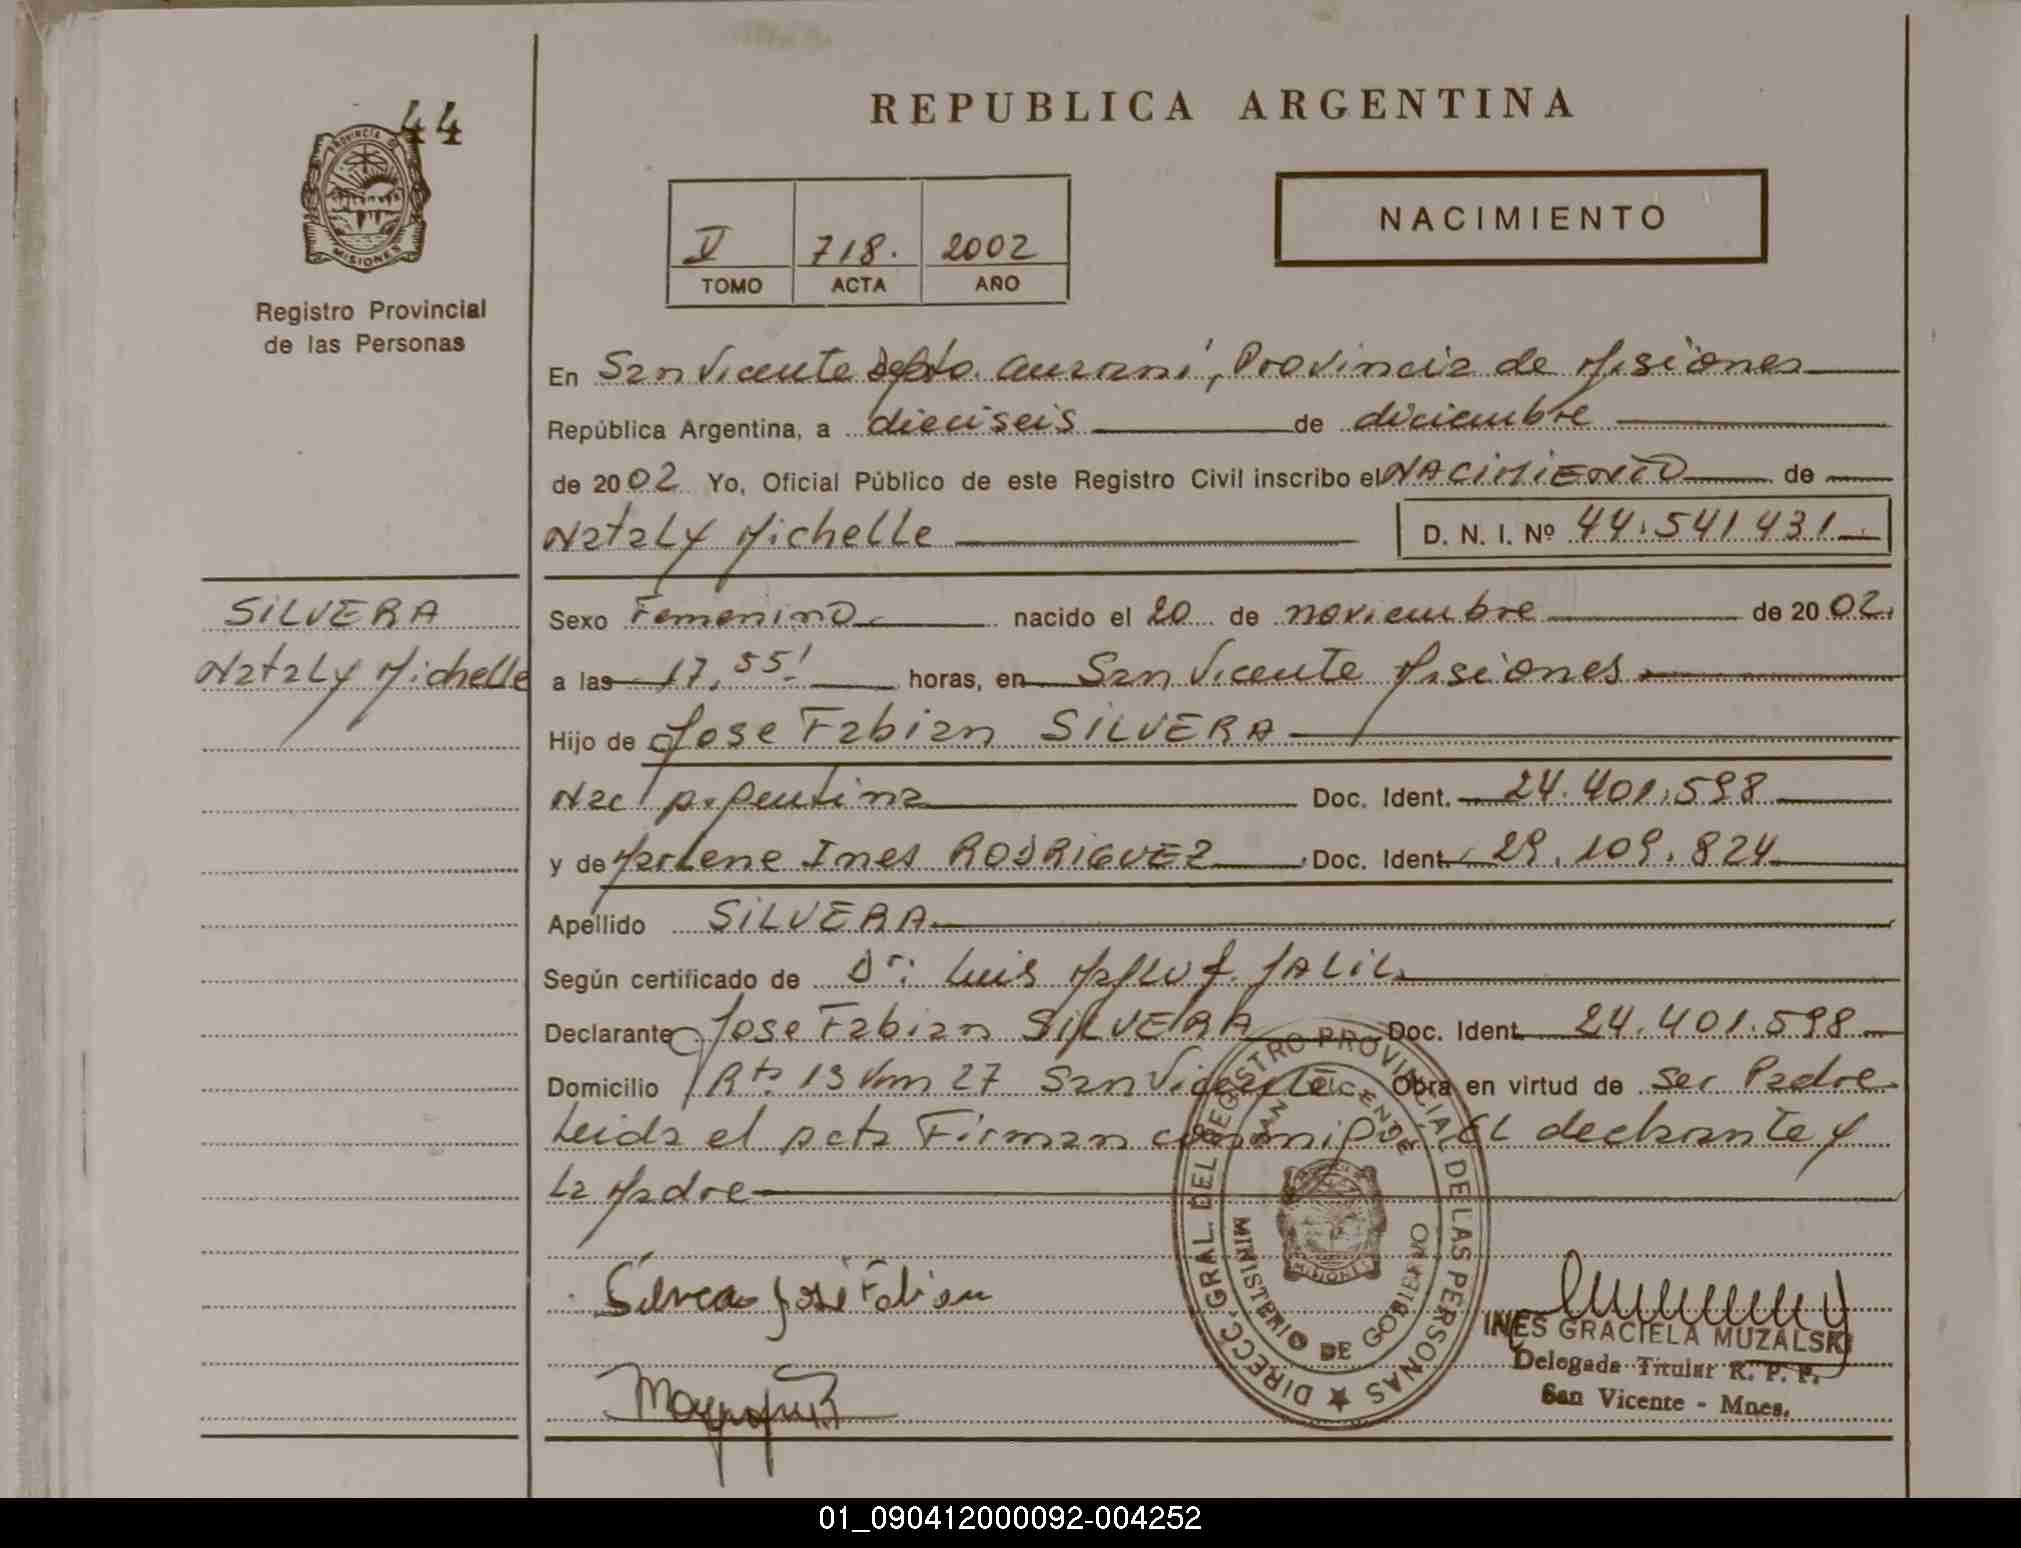 44
PROVINCIA DE
MISIONES
Registro Provincial
de las Personas
SILVERA
Nataly Michelle
REPUBLICA ARGENTINA
V 718. 2002
TOMO ACTA AÑO
NACIMIENTO
En San Vicente Depto. Guaraní, Provincia de Misiones
República Argentina, a dieciseis de diciembre
de 2002 Yo, Oficial Público de este Registro Civil inscribo el NACIMIENTO de
Nataly Michelle D. N. I. Nº 44.541431
Sexo Femenino nacido el 20 de noviembre de 2002.
a las 17,55' horas, en San Vicente Misiones
Hijo de Jose Fabian SILVERA
Nac Argentina Doc. Ident. 24.401.598
y de Marlene Ines RODRIGUEZ Doc. Ident. 29.109.824
Apellido SILVERA
Según certificado de Dr: Luis JALIL
Declarante Jose Fabian SILVERA Doc. Ident. 24.401.598
Domicilio Rta 13 Km 27 San Vicente Obra en virtud de ser Padre
Leida el acta Firman conmigo. EL declarante y
La Madre
DIRECC. GRAL. DEL REGISTRO PROVINCIAL DE LAS PERSONAS
SAN VICENTE
MISIONES
MINISTERIO DE GOBIERNO
Silvera José Fabian
INES GRACIELA MUZALSKI
Delegada Titular R. P. P.
San Vicente - Mnes.
01_090412000092-004252